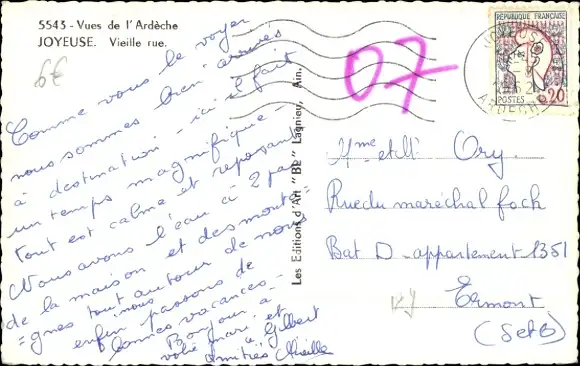 5543 - Vues de l'Ardèche
JOYEUSE. Vieille rue.
6€
Comme vous le voyer
nous sommes bien arrivés
à destination - ici il fait
un temps magnifique -
tout est calme et reposant
Nous avons l'eau à 2 pas
de la maison et des monta=
=gnes tout autour de nous
enfin nous passons de
bonnes vacances -
Bonjour à
votre mari et
à Gilbert
Amitiés Mireille
Les Editions d'Art "BL" Lagnieu, Ain.
07
RÉPUBLIQUE FRANÇAISE
POSTES
0,20
JOYEUSE
ARDECHE
Mme et M Ory
Rue du maréchal foch
Bat D - appartement 1351
Ermont
(S et O)